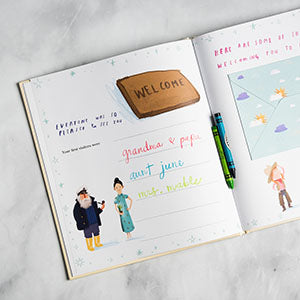 WELCOME
EVERYONE WAS SO
PLEASED TO SEE YOU
Your first visitors were:
grandma & papa
aunt june
mrs. mable
HERE ARE SOME OF
WELCOMING YOU TO